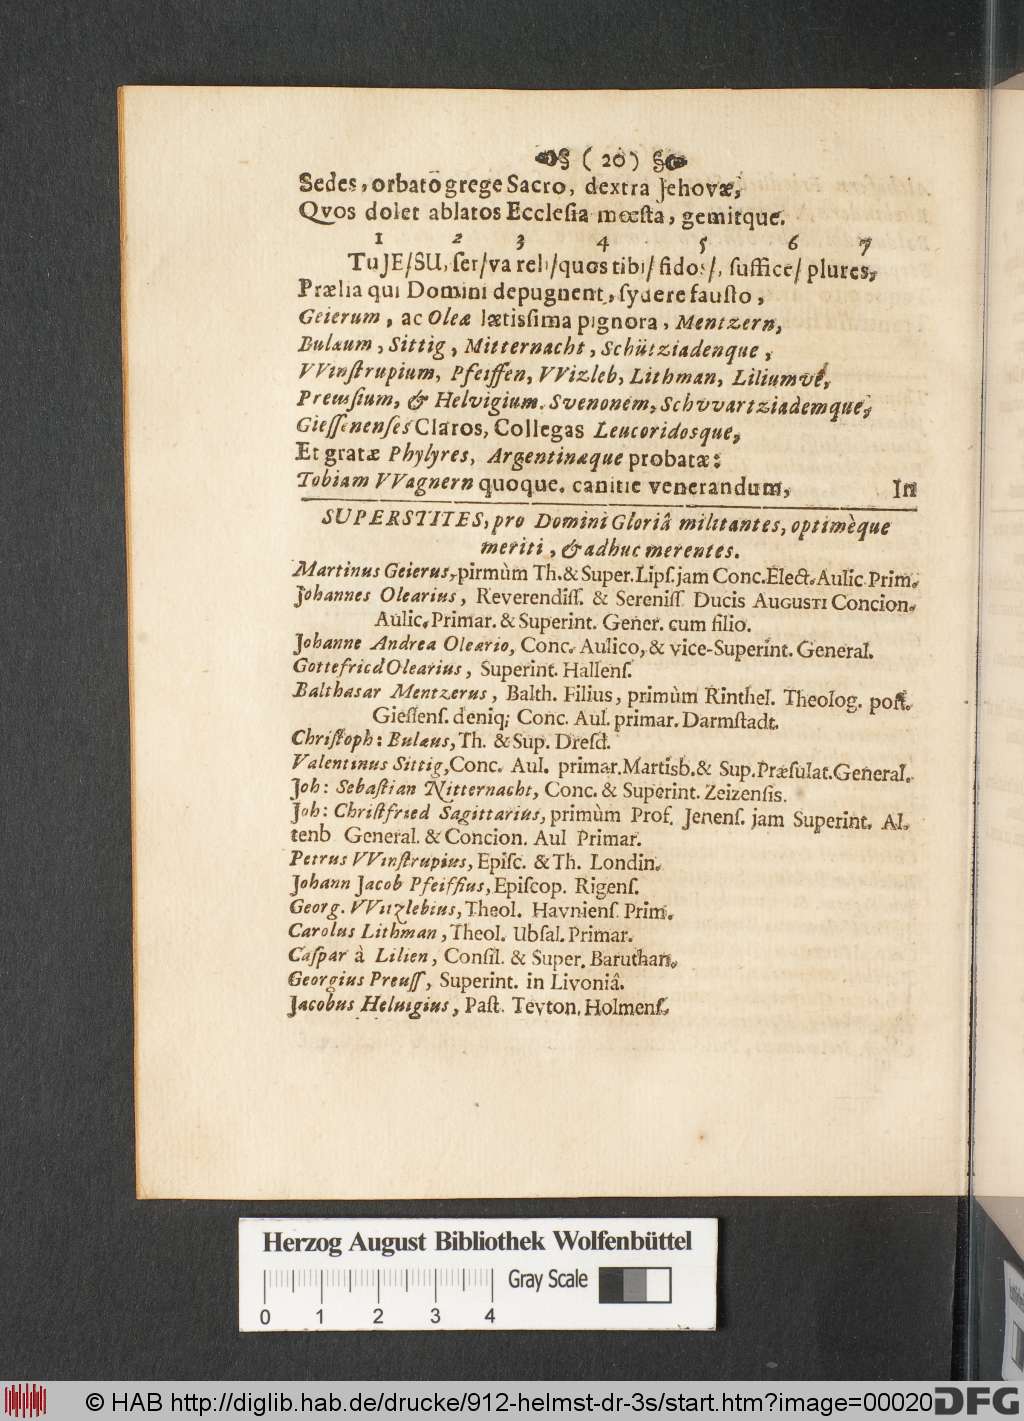 ( 20 )
Sedes, orbatō grege Sacro, dextra Jehovæ,
Qvos dolet ablatos Ecclesia mœsta, gemitque.
1 2 3 4 5 6 7
Tu JE/SU, ser/va reli/quos tibi/ fidos/, suffice/ plures,
Prælia qui Domini depugnent, sydere fausto,
Geierum, ac Oleæ lætissima pignora, Mentzern,
Bulæum, Sittig, Mitternacht, Schütziadenque,
VVinstrupium, Pfeiffen, VVizleb, Lithman, Liliumve,
Preussium, & Helvigium. Svenonem, Schvvartziademque,
Giessenenses Claros, Collegas Leucoridosque,
Et gratæ Phylyres, Argentinæque probatæ:
Tobiam VVagnern quoque. canitie venerandum,
In
SUPERSTITES, pro Domini Gloriâ militantes, optimèque
meriti, & adhuc merentes.
Martinus Geierus, pirmùm Th. & Super. Lips. jam Conc. Elect. Aulic. Prim.
Johannes Olearius, Reverendiss. & Sereniss Ducis AUGUSTI Concion.
Aulic. Primar. & Superint. Gener. cum filio.
Johanne Andrea Oleario, Conc. Aulico, & vice-Superint. General.
Gottefried Olearius, Superint. Hallens.
Balthasar Mentzerus, Balth. Filius, primùm Rinthel. Theolog. post.
Giessens. deniq; Conc. Aul. primar. Darmstadt.
Christoph: Bulæus, Th. & Sup. Dresd.
Valentinus Sittig, Conc. Aul. primar. Martisb. & Sup. Præsulat. General.
Joh: Sebastian Nitternacht, Conc. & Superint. Zeizensis.
Joh: Christfried Sagittarius, primùm Prof. Jenens. jam Superint. Al.
tenb General. & Concion. Aul Primar.
Petrus VVinstrupius, Episc. & Th. Londin.
Johann Jacob Pfeiffius, Episcop. Rigens.
Georg. VVitzlebius, Theol. Havniens. Prim.
Carolus Lithman, Theol. Ubsal. Primar.
Caspar à Lilien, Consil. & Super. Baruthan.
Georgius Preuss, Superint. in Livoniâ.
Jacobus Helvigius, Past. Tevton. Holmens.
Herzog August Bibliothek Wolfenbüttel
Gray Scale
0 1 2 3 4
© HAB http://diglib.hab.de/drucke/912-helmst-dr-3s/start.htm?image=00020
DFG